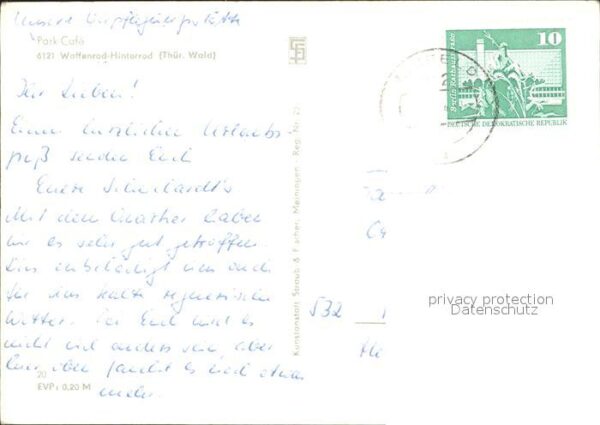 Unsere Verpflegungsstätte
Park Café
6121 Waffenrod-Hinterrod (Thür. Wald)
Ihr Lieben!
Einen herzlichen Urlaubs-
gruß senden Euch
Eure
Mit dem Quartier haben
wir es sehr gut getroffen.
Das entschädigt uns auch
für das kalte regnerische
Wetter. Bei Euch wird es
nicht viel anders sein, aber
hier oben faucht es noch etwas
mehr.
20
EVP: 0,20 M
Kunstanstalt Straub & Fischer, Meiningen · Reg. Nr.
10
Berlin Rathausstraße
DEUTSCHE DEMOKRATISCHE REPUBLIK
532
privacy protection
Datenschutz